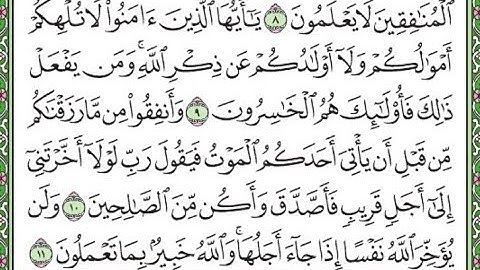 ٱلْمُنَٰفِقِينَ لَا يَعْلَمُونَ ٨ يَٰٓأَيُّهَا ٱلَّذِينَ ءَامَنُوا۟ لَا تُلْهِكُمْ
أَمْوَٰلُكُمْ وَلَآ أَوْلَٰدُكُمْ عَن ذِكْرِ ٱللَّهِ ۚ وَمَن يَفْعَلْ
ذَٰلِكَ فَأُو۟لَٰٓئِكَ هُمُ ٱلْخَٰسِرُونَ ٩ وَأَنفِقُوا۟ مِن مَّا رَزَقْنَٰكُم
مِّن قَبْلِ أَن يَأْتِىَ أَحَدَكُمُ ٱلْمَوْتُ فَيَقُولَ رَبِّ لَوْلَآ أَخَّرْتَنِىٓ
إِلَىٰٓ أَجَلٍ قَرِيبٍ فَأَصَّدَّقَ وَأَكُن مِّنَ ٱلصَّٰلِحِينَ ١٠ وَلَن
يُؤَخِّرَ ٱللَّهُ نَفْسًا إِذَا جَآءَ أَجَلُهَا ۚ وَٱللَّهُ خَبِيرٌۢ بِمَا تَعْمَلُونَ ١١